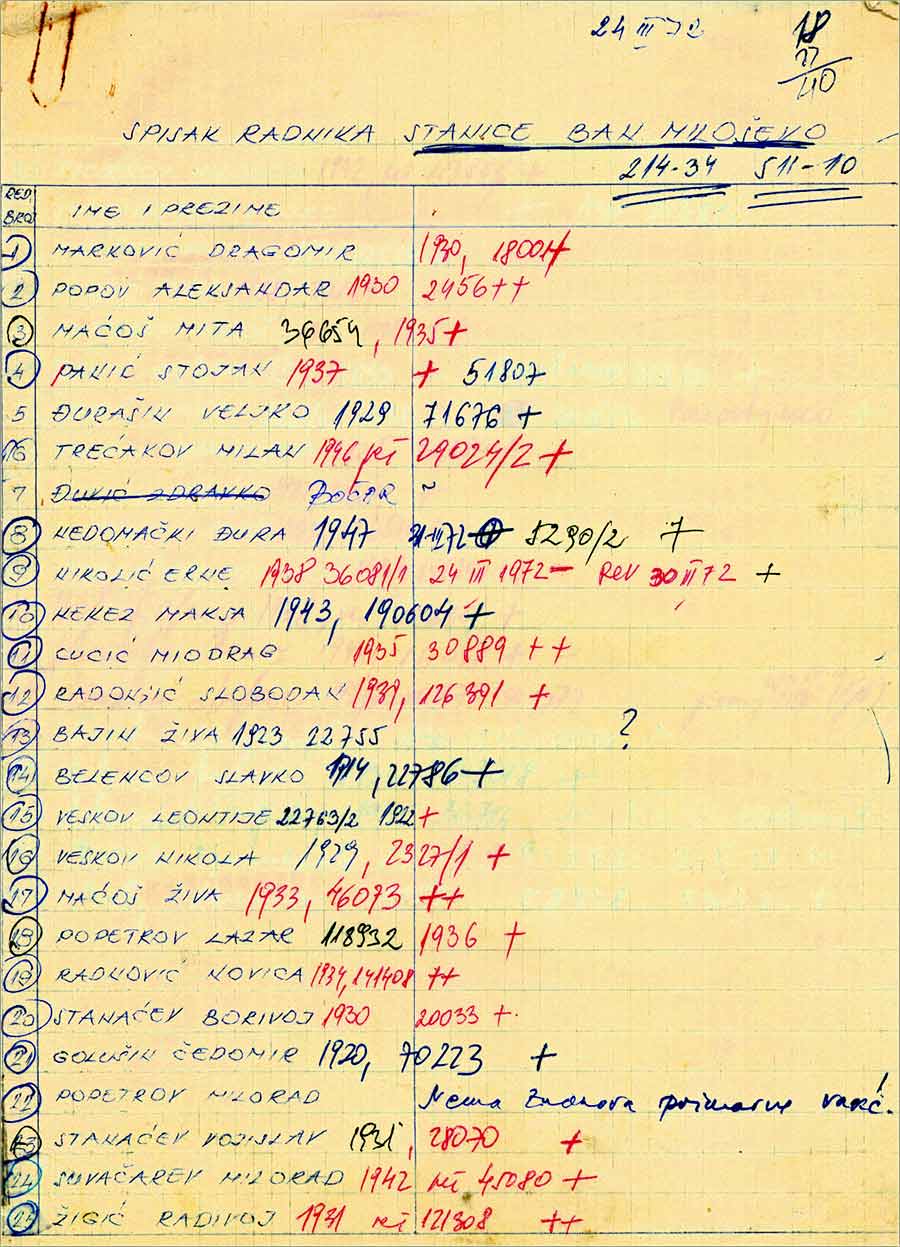 24 III 72
18
22
40
SPISAK RADNIKA STANICE BAN MILOŠEVO
214-34 511-10
RED. BROJ IME I PREZIME
1 MARKOVIĆ DRAGOMIR 1930, 18001+
2 POPOV ALEKSANDAR 1930 2456++
3 MAĆOŠ MITA 36654, 1935+
4 PANIĆ STOJAN 1937 + 51807
5 ĐURAŠIN VELJKO 1929 71676 +
6 TREĆAKOV MILAN 1946 29024/2 +
7 ĐUKIĆ ZDRAVKO BOČAR ~
8 NEDOMAČKI ĐURA 1947 5290/2 +
9 NIKOLIĆ ERNE 1938 36081/1 24 III 1972 – REV 30 III 72 +
10 KEKEZ MAKSA 1943, 190604 +
11 CUCIĆ MIODRAG 1935 30889 ++
12 RADONJIĆ SLOBODAN 1939, 126391 +
13 BAJIN ŽIVA 1923 22755 ?
14 BELENCOV SLAVKO 1914, 22786 +
15 VESKOV LEONTIJE 22763/2 1922+
16 VESKOV NIKOLA 1929, 2327/1 +
17 MAĆOŠ ŽIVA 1933, 46093 ++
18 POPETROV LAZAR 118932 1936 +
19 RADNOVIĆ NOVICA 1934, 141408 ++
20 STANAĆEV BORIVOJ 1930 20033 +
21 GOLUŠIN ČEDOMIR 1920, 70223 +
22 POPETROV MILORAD Nema znakova primarne vakc.!
23 STANAĆEV VOJISLAV 1931, 28070 +
24 SUVAČAREV MILORAD 1942 45080 +
25 ŽIGIĆ RADIVOJ 1931 121308 ++